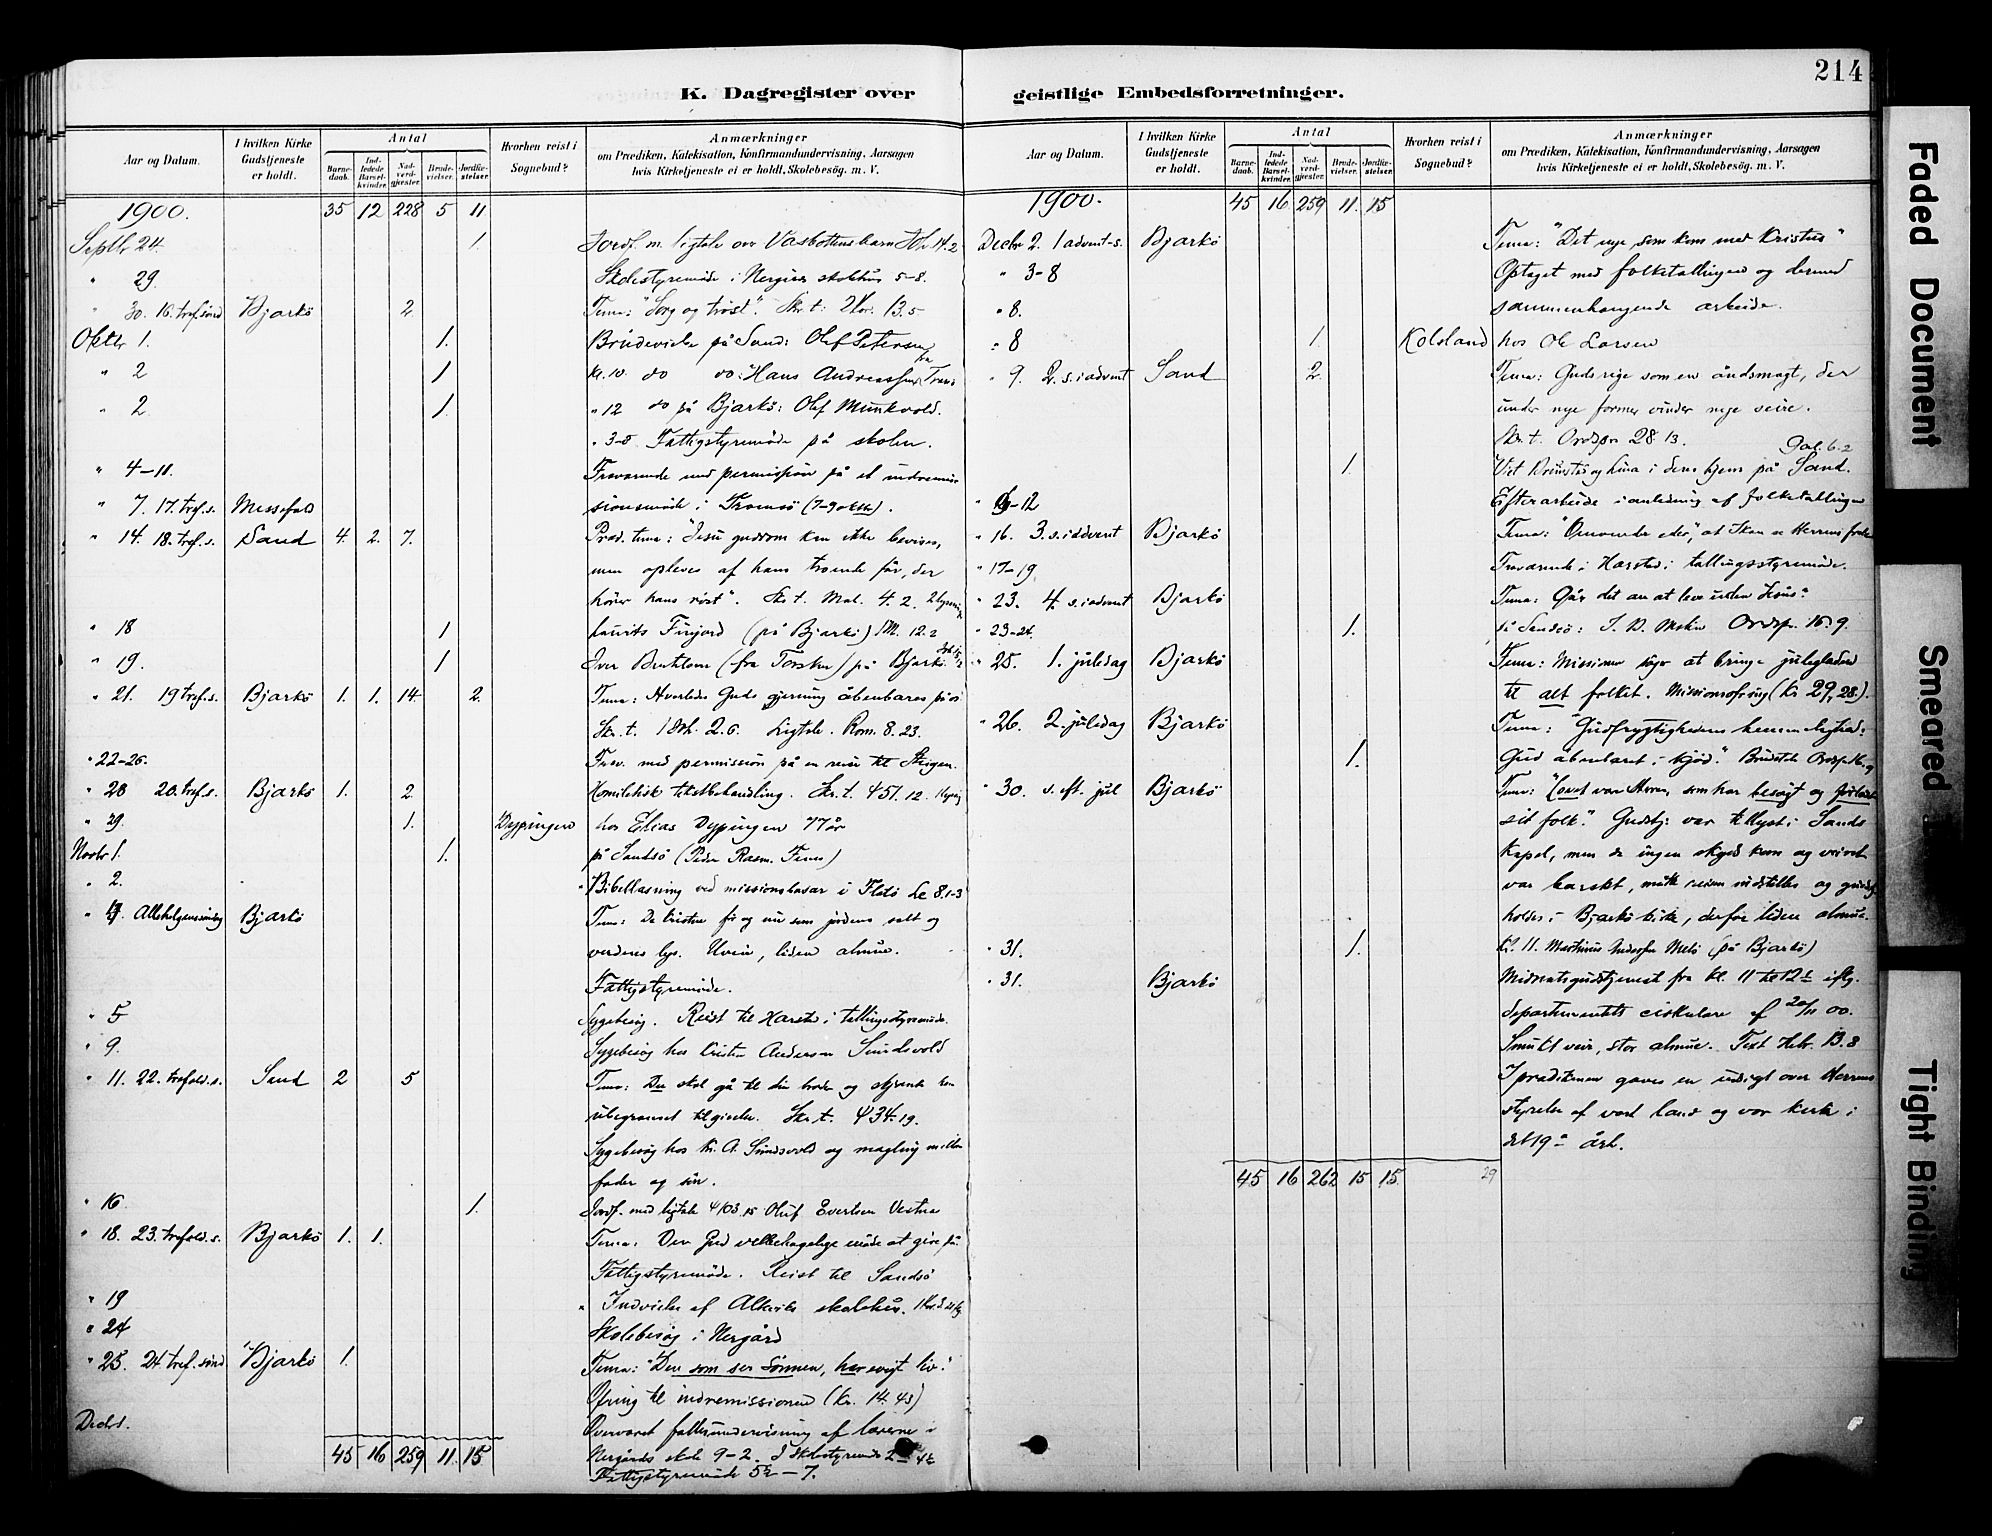 214
K. Dagregister over
geistlige Embedsforretninger.
Aar og Datum.
I hvilken Kirke Gudstjeneste er holdt.
Antal
Barne-daab.
Ind-ledede Barsel-kvinder.
Nad-verd-gjester.
Brude-vielser.
Jordfæ-stelser.
Hvorhen reist i Sognebud?
Anmærkninger
om Prædiken, Katekisation, Konfirmandundervisning, Aarsagen
hvis Kirketjeneste ei er holdt, Skolebesög. m. V.
1900. 35 12 228 5 11
Septbr 24. 1 Jordf. m. ligtale over Vasbottens barn Joh. 14.2
" 29. Skolestyremøde i skolehus 5-8.
" 30. 16. tref. sönd Bjarkö 2 Tema: "Sorg og tröst". Skr. t: 2 Kor. 13.5
Oktbr 1. 1. Brudevielse på Sand: Olef Petersen
" 2 1 kl. 10. do do: Hans Andreassen fra
" 2. 1. " 12 do på Bjarkö: Olef Munkvold.
" 3-5 Fattigstyremöde på skolen.
" 4-11. Fraværende med permission på et indremis-
" 7. 17. tref. s. Messefald sionsmöde i Tromsö (7-9 oktbr).
" 14. 18. tref. s. Sand 4. 2. 7. Præd. tema: "Jesu guddom kan ikke bevises,
men opleves af hans troende får, der
hörer hans röst". Skr. t. Mat. 4. 2.
" 18 1 Laurits Finjord (på Bjarkö) 1 M. 12.2
" 19. 1 Iver (fra Torsken) på Bjarkö.
" 21. 19 tref. s. Bjarkö 1. 1. 14. 2. Tema: Hvorledes Guds gjerning åbenbares på os
Skr. t. 2. 6. Ligtale. Rom. 8. 23.
" 22-26. Frav. med permission på en reise til Steigen.
" 28 20. tref. s. Bjarkö 1. 2. Homiletisk tekstbehandling. Skr. t. 451. 12.
" 29. 1. Dypingen hos Elias Dypingen 77 år
Novbr 1. 1. på Sandsö (Peder Rasm. )
" 2. Bibellæsning ved missionsbasar i Fletö 8. 1-3
" 4. Allehelgenssöndag Bjarkö Tema: De kristne för og nu som jordens salt og
verdens lys. Uveir, liden almue.
Fattigstyremöde.
" 5 Sygebesög. Reist til Harstad i tællingsstyremöde.
" 9. Sygebesög hos Kristen Andersen Sundsvold
" 11. 22. trefold. s. Sand 2 5 Tema: Du skal gå til din broder og skjænke ham
ubegrænset tilgivelse. Skr. t. 434. 19.
Sygebesög hos Kr. A. Sundsvold og mægling mellem
fader og sön.
" 16 1. Jordf. med ligtale 4/03. 15 Oluf Evertsen Vestnes
" 18. 23. trefold. s. Bjarkö 1. 1. Tema: Den Gud velbehagelige måde at give på.
Fattigstyremöde. Reist til Sandsö
" 19 " Indvielse af Alkevik skolehus.
" 24 Skolebesög i Nergård
" 25. 24 tref. sönd Bjarkö 1. Tema: "Den som ser Sönnen, har evigt liv."
Ofring til indremissionen (Kr. 14. 43)
Decbr. 1. Overværet fællesundervisning af lærerne i
45 16 259 11. 15 Nergårds skole 9-2. I skolestyremöde 2-4½
Fattigstyremöde 5½-7.
Aar og Datum.
I hvilken Kirke Gudstjeneste er holdt.
Antal
Barne-daab.
Ind-ledede Barsel-kvinder.
Nad-verd-gjester.
Brude-vielser.
Jordfæ-stelser.
Hvorhen reist i Sognebud?
Anmærkninger
om Prædiken, Katekisation, Konfirmandundervisning, Aarsagen
hvis Kirketjeneste ei er holdt, Skolebesög. m. V.
1900. 45 16 259 11. 15
Decbr 2. 1 advent-s. Bjarkö Tema: "Det nye som kom med Kristus"
" 3-8 Optaget med folketællingen og dermed
" 8. sammenhængende arbeide.
" 8 1. Kolsland hos Ole Larsen
" 9. 2. s. i advent Sand 2. Tema: Gudsrige som en åndsmagt, der
under nye former vinder nye seire.
Skr. t. Ordspr. 28 13. Gal. 6. 2
1. Viet og Lina i deres hjem på Sand.
-12 Efterarbeide i anledning af folketællingen
" 16. 3. s. i advent Bjarkö Tema: "Omvender eder," at I kan se Herrens frelse
" 17-19. Fraværende i Harstad i tællingsstyremöde.
" 23. 4. s. i advent Bjarkö Tema: Går det an at leve uden Jesus?
" 23-24. 1. på Sandsö: Ordspr. 16. 9.
" 25. 1. juledag Bjarkö Tema: Missionen söger at bringe juleglæden
til alt folket. Missionsofring (Kr. 29, 28).
" 26. 2. juledag Bjarkö Tema: "Gudfrygtighedens hemmelighed:
1. Gud åbenbaret i kjöd." Ordspr. 16. 9
" 30. s. eft. jul Bjarkö Tema: "Lovet være Herren som har besögt og forlöst
sit folk." Gudstj: var tillyst i Sands
kapel, men da ingen skyds kom og veiret
var barskt, måtte reisen indstilles og gudstj.
holdes i Bjarkö kirke, derfor liden almue.
" 31. 1. kl. 11. Martinus Andersen Melö (på Bjarkö)
" 31. Bjarkö Midnatsgudstjenest fra kl. 11 til 12½ iflg.
departementets cirkulære af 20/11 00.
Smukt veir, stor almue. Text Hebr. 13. 8
I prædikenen gaves en udsigt over Herrens
styrelse af vort land og vor kirke i
det 19de årh.
45 16 262 15 15. 29
Faded Document
Smeared
Tight Binding